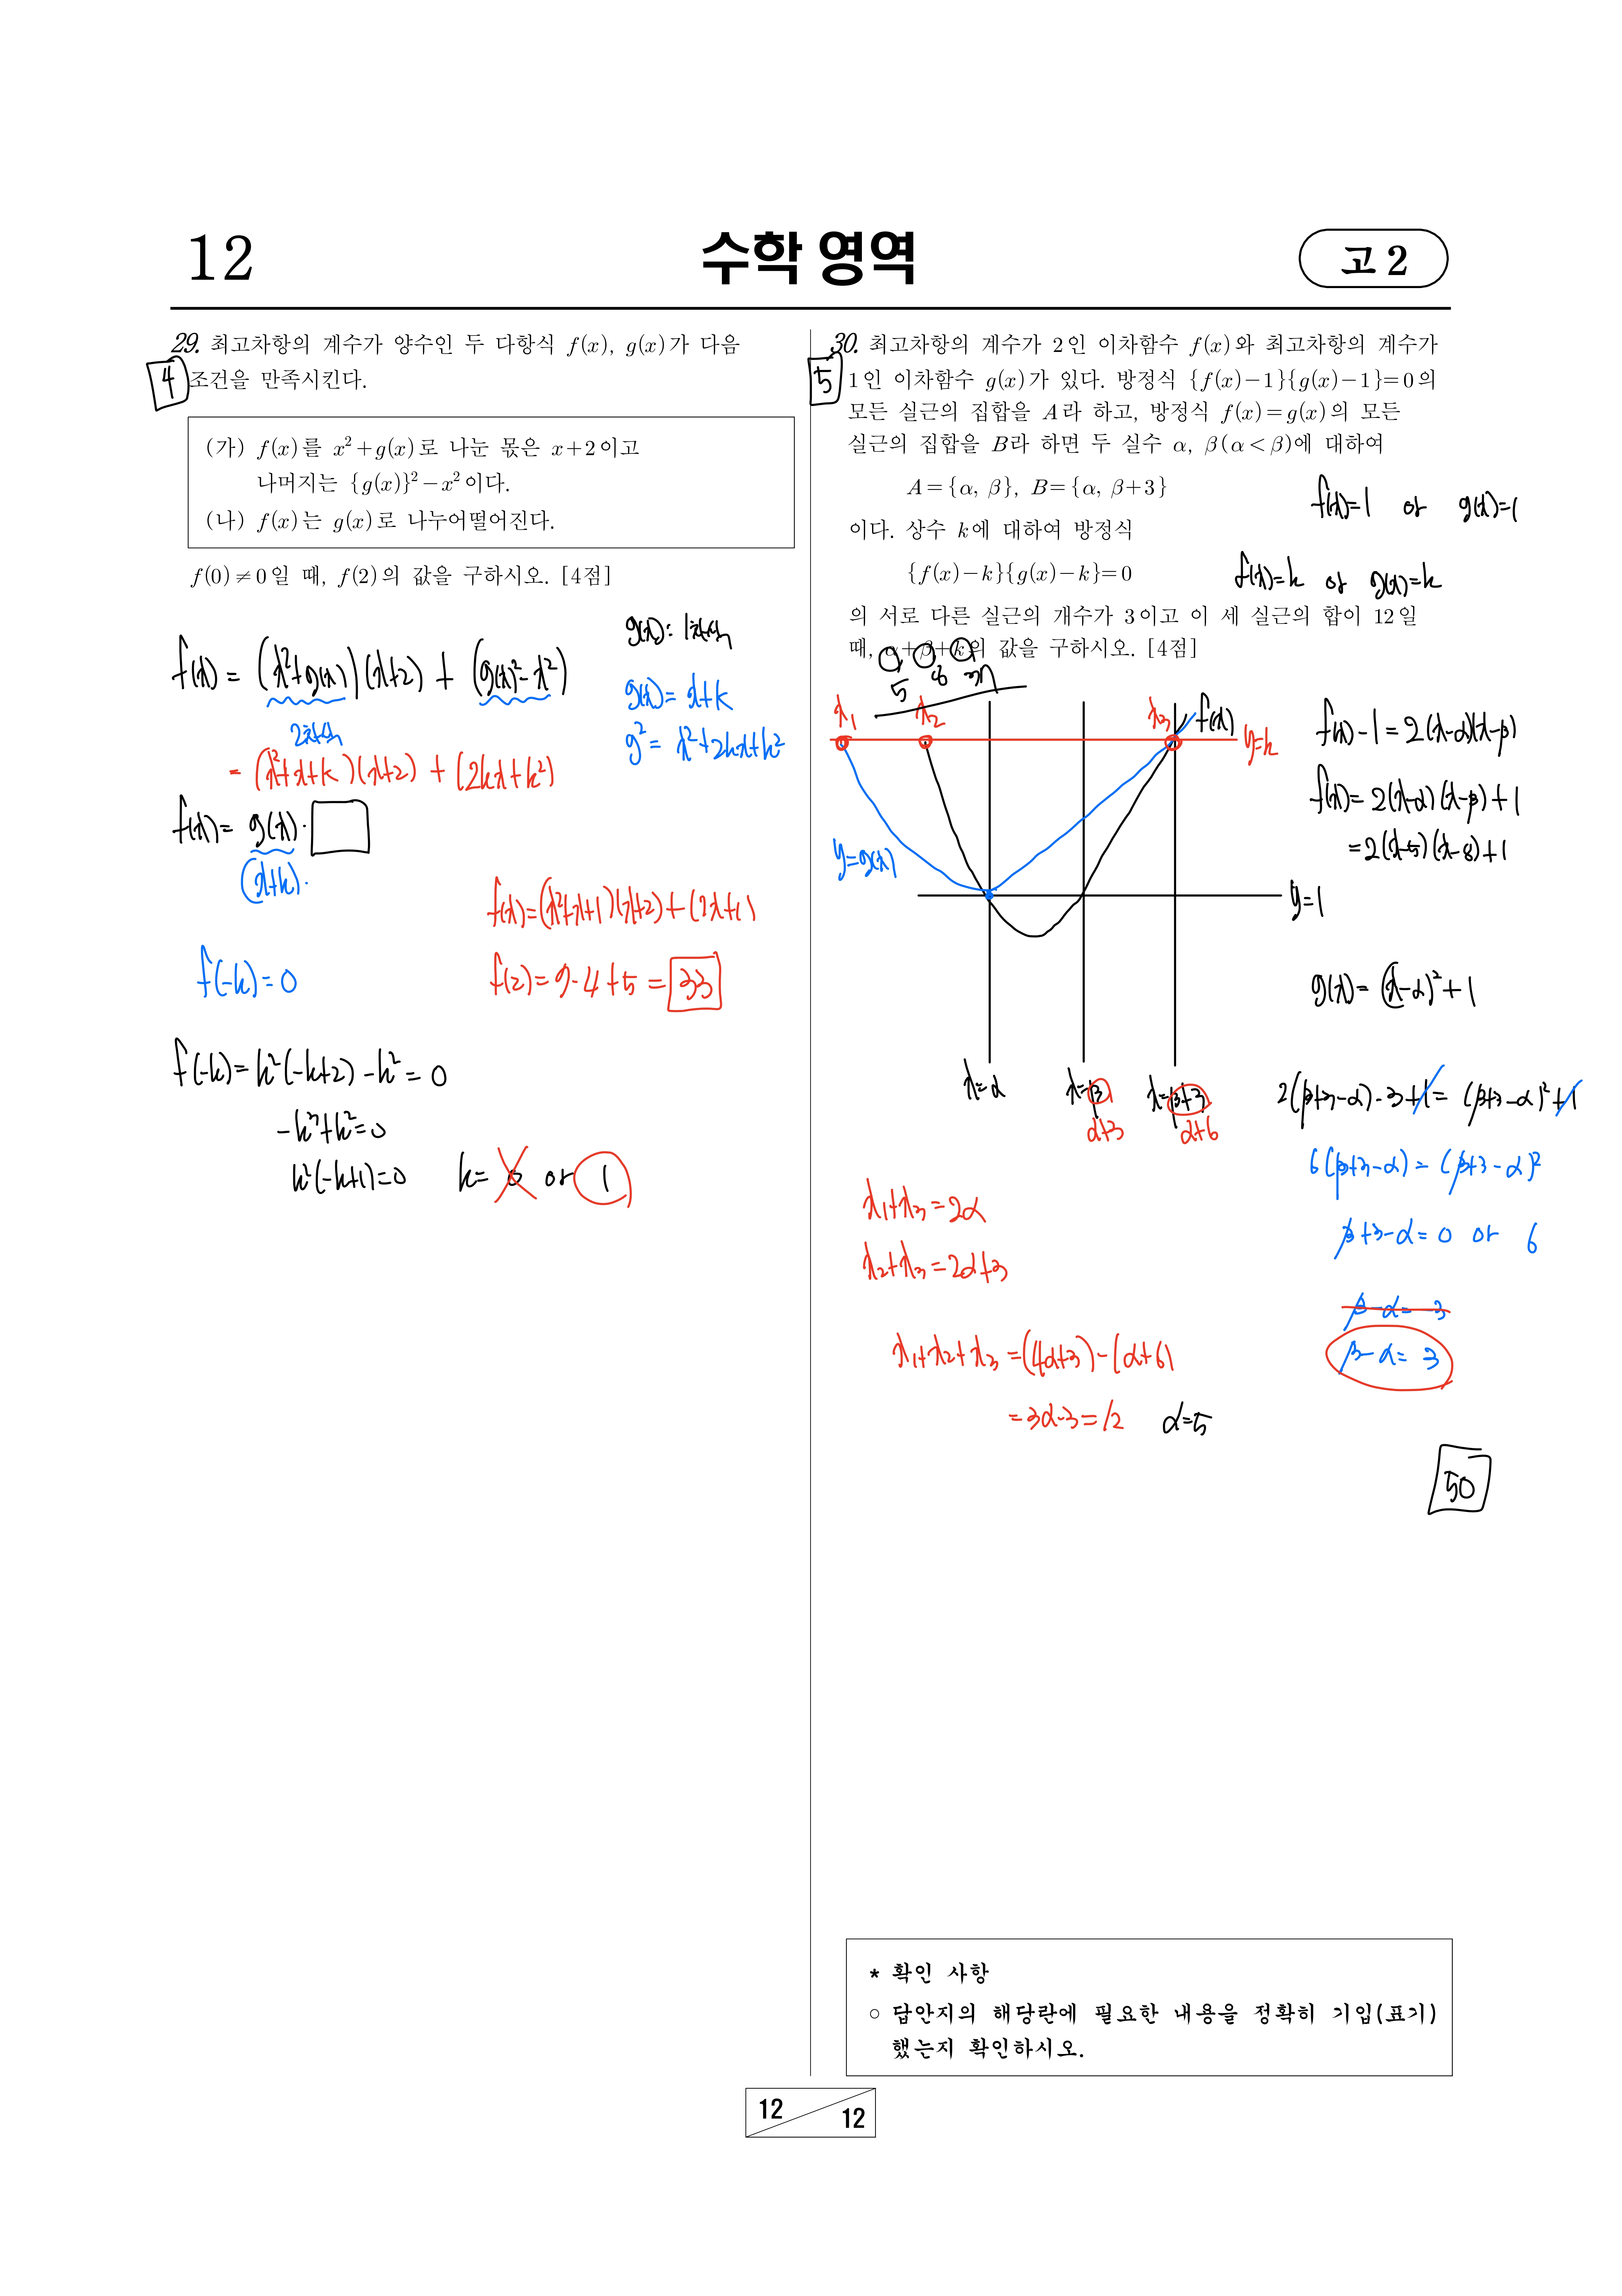 12
수학 영역
고 2
29. 최고차항의 계수가 양수인 두 다항식 f(x), g(x)가 다음
4
조건을 만족시킨다.
(가) f(x)를 x²+g(x)로 나눈 몫은 x+2이고
나머지는 {g(x)}²-x²이다.
(나) f(x)는 g(x)로 나누어떨어진다.
f(0)≠0일 때, f(2)의 값을 구하시오. [4점]
g(x): 1차식
f(x) = (x²+g(x))(x+2) + (g(x)²-x²)
2차식
g(x) = x+k
g² = x²+2kx+k²
= (x²+x+k)(x+2) + (2kx+k²)
f(x) = g(x)·
(x+k)·
f(x)=(x²+x+1)(x+2)+(2x+1)
f(-k)=0
f(2)=7·4+5=33
f(-k)=k²(-k+2)-k²=0
-k³+k²=0
k²(-k+1)=0 k= 0 or 1
30. 최고차항의 계수가 2인 이차함수 f(x)와 최고차항의 계수가
5
1인 이차함수 g(x)가 있다. 방정식 {f(x)-1}{g(x)-1}=0의
모든 실근의 집합을 A라 하고, 방정식 f(x)=g(x)의 모든
실근의 집합을 B라 하면 두 실수 α, β(α<β)에 대하여
A={α, β}, B={α, β+3}
f(x)=1 or g(x)=1
이다. 상수 k에 대하여 방정식
{f(x)-k}{g(x)-k}=0
f(x)=k or g(x)=k
의 서로 다른 실근의 개수가 3이고 이 세 실근의 합이 12일
때, α+β+k의 값을 구하시오. [4점]
5 8 37
x₁ x₂ x₃ f(x)
y=k
f(x)-1=2(x-α)(x-β)
f(x)=2(x-α)(x-β)+1
=2(x-5)(x-8)+1
y=g(x)
y=1
g(x)=(x-α)²+1
x=α x=β x=β+3
α+3 α+6
2(β+3-α)·3+1=(β+3-α)²+1
6(β+3-α)=(β+3-α)²
β+3-α=0 or 6
β-α=-3
β-α=3
x₁+x₃=2α
x₂+x₃=2α+3
x₁+x₂+x₃=(4α+3)-(α+6)
=3α-3=12 α=5
50
* 확인 사항
○ 답안지의 해당란에 필요한 내용을 정확히 기입(표기)
했는지 확인하시오.
12
12